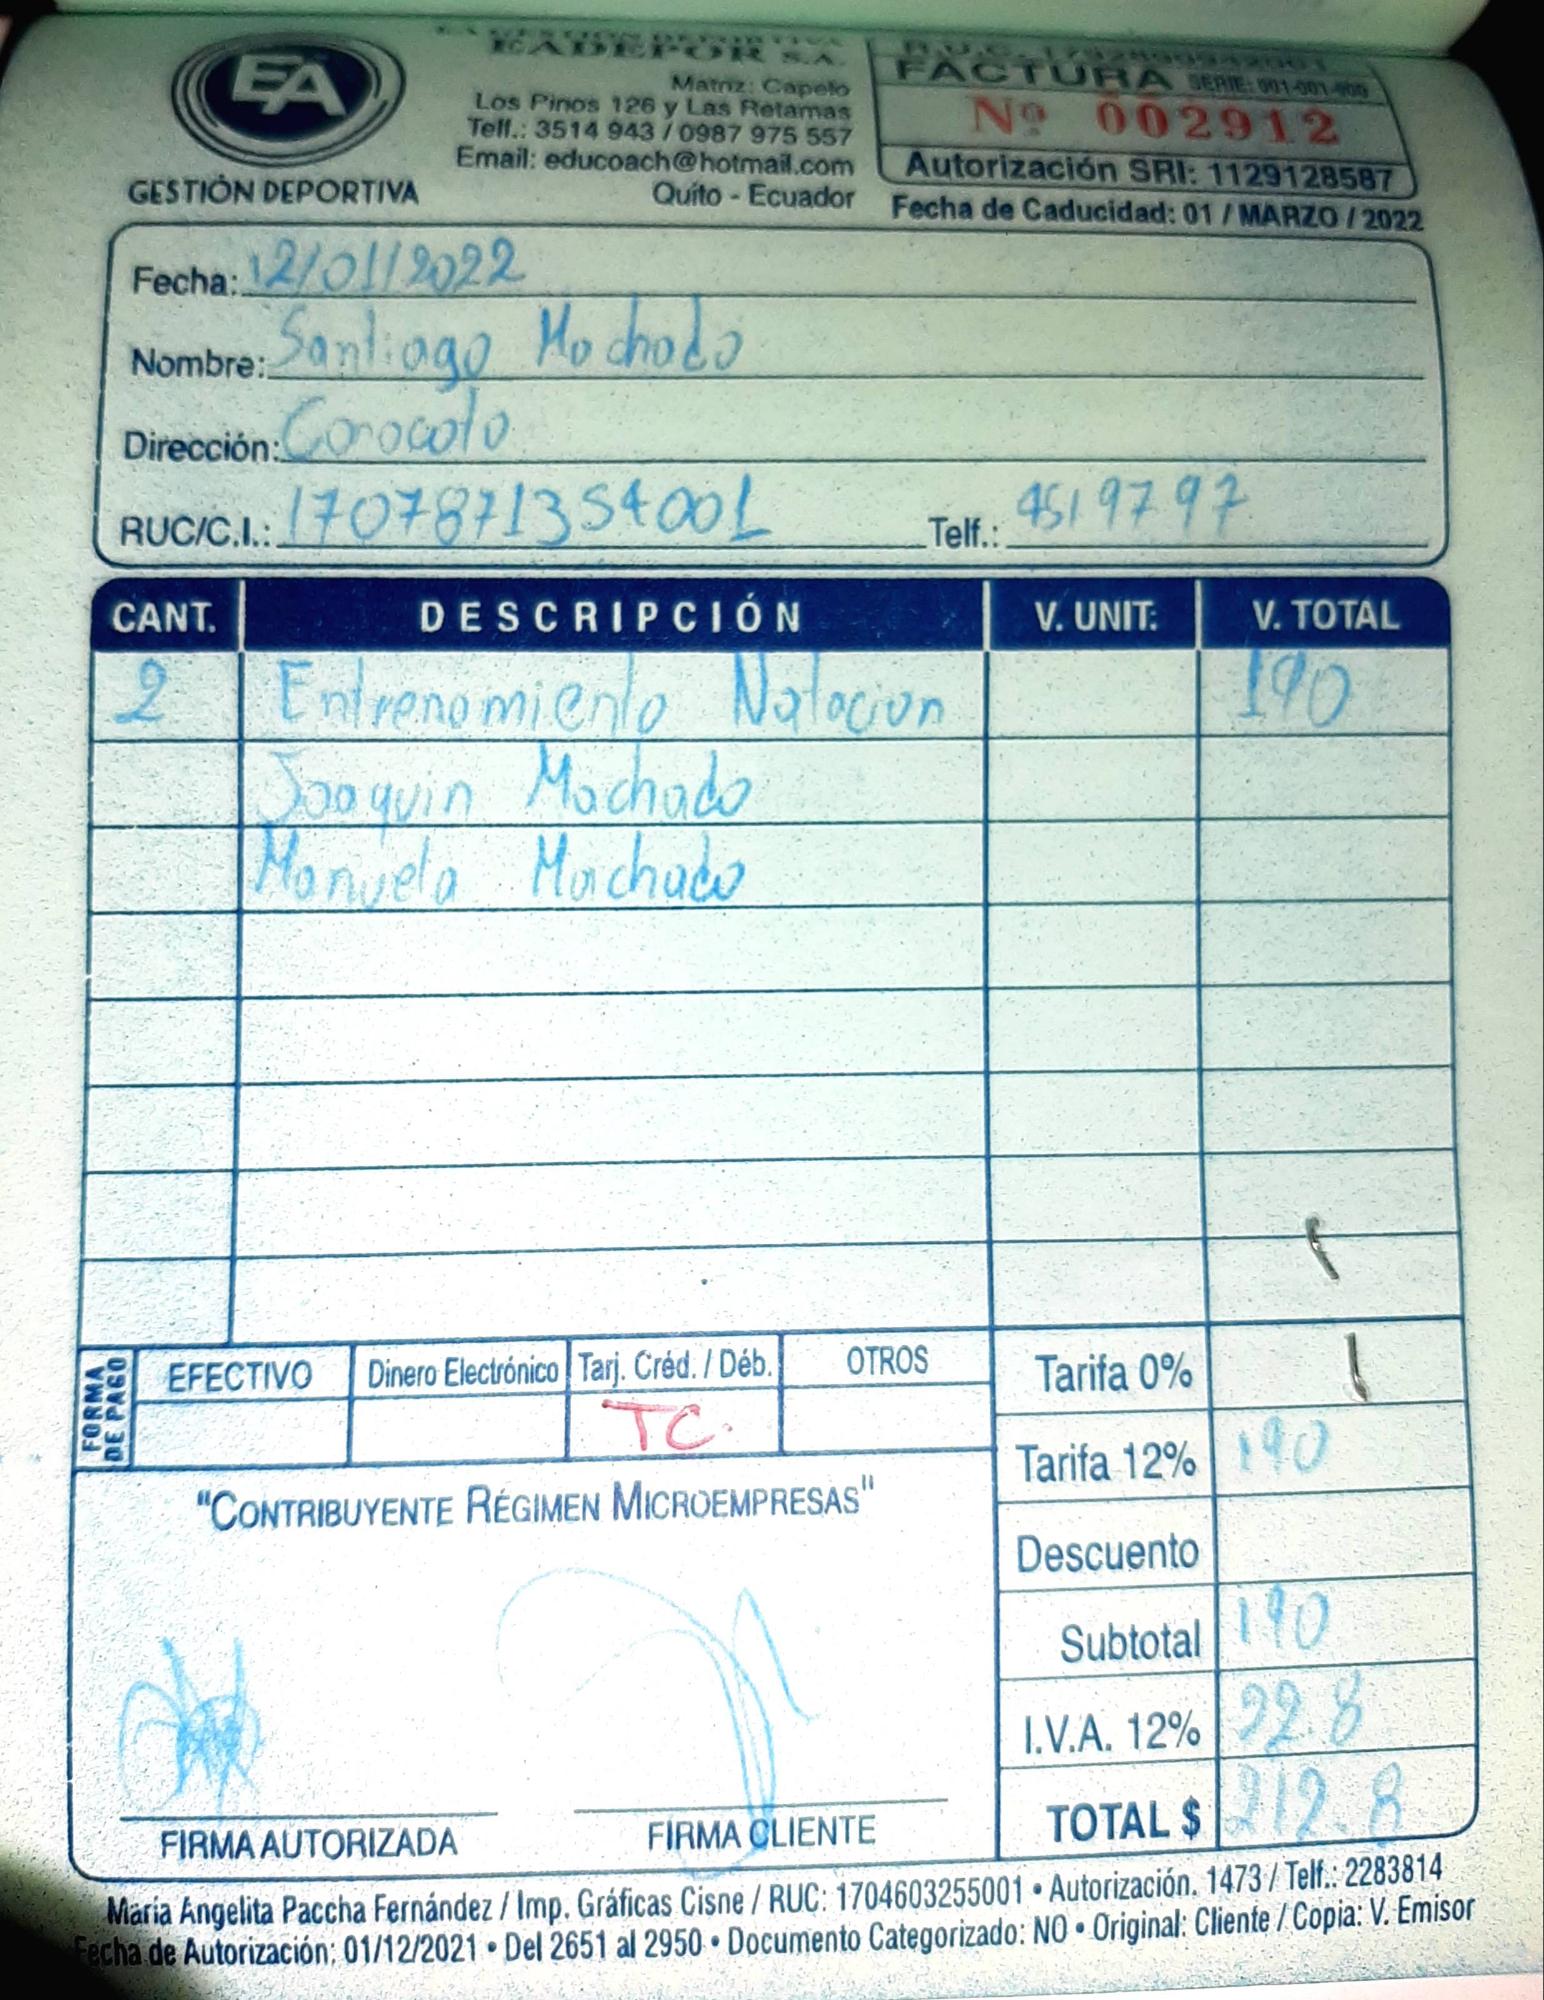 EA
GESTIÓN DEPORTIVA
EADEPOR S.A.
Matriz: Capelo
Los Pinos 126 y Las Retamas
Telf.: 3514 943 / 0987 975 557
Email: educoach@hotmail.com
Quito - Ecuador
FACTURA SERIE: 001-001-000
Nº 002912
Autorización SRI: 1129128587
Fecha de Caducidad: 01 / MARZO / 2022
Fecha: 12/01/2022
Nombre: Santiago Machado
Dirección: Conocoto
RUC/C.I.: 1707871354001 Telf.: 4519797
CANT. DESCRIPCIÓN V. UNIT: V. TOTAL
2 Entrenamiento Natacion 190
Joaquin Machado
Manuela Machado
FORMA DE PAGO
EFECTIVO Dinero Electrónico Tarj. Créd. / Déb. OTROS
TC.
Tarifa 0%
Tarifa 12% 190
Descuento
Subtotal 190
I.V.A. 12% 22.8
TOTAL $ 212.8
"CONTRIBUYENTE RÉGIMEN MICROEMPRESAS"
FIRMA AUTORIZADA FIRMA CLIENTE
María Angelita Paccha Fernández / Imp. Gráficas Cisne / RUC: 1704603255001 • Autorización. 1473 / Telf.: 2283814
Fecha de Autorización: 01/12/2021 • Del 2651 al 2950 • Documento Categorizado: NO • Original: Cliente / Copia: V. Emisor